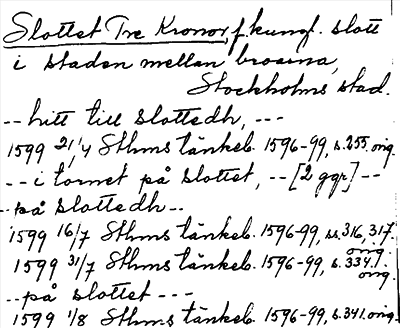 Slottet Tre Kronor, f. kungl. slott
i staden mellan broarna,
Stockholms stad.
-- hitt till slottedh, ---
1599 21/4 Sthms tänkeb. 1596-99, s. 255. orig.
-- i tornet på slottet, -- [2 ggr] --
-- på slottedh --
1599 16/7 Sthms tänkeb. 1596-99, ss. 316, 317. orig.
1599 31/7 Sthms tänkeb. 1596-99, s. 339. orig.
-- på slottet ---
1599 1/8 Sthms tänkeb. 1596-99, s. 341. orig.